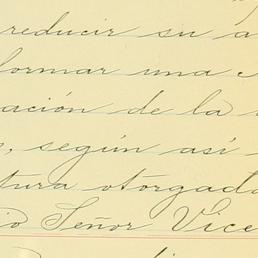 reducir su a
formar una
ación de la
, según así
tura otorgada
io Señor Vice